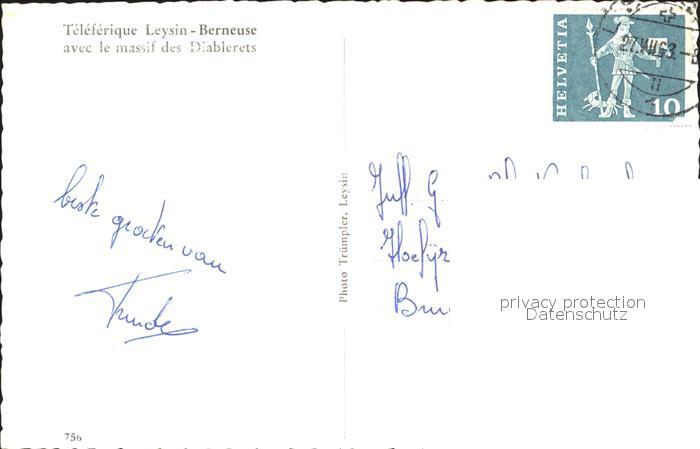 Téléférique Leysin - Berneuse
avec le massif des Diablerets
HELVETIA
10
beste groeten van
Trude
Photo Trümpler, Leysin
Juff G
Bru
privacy protection
Datenschutz
756